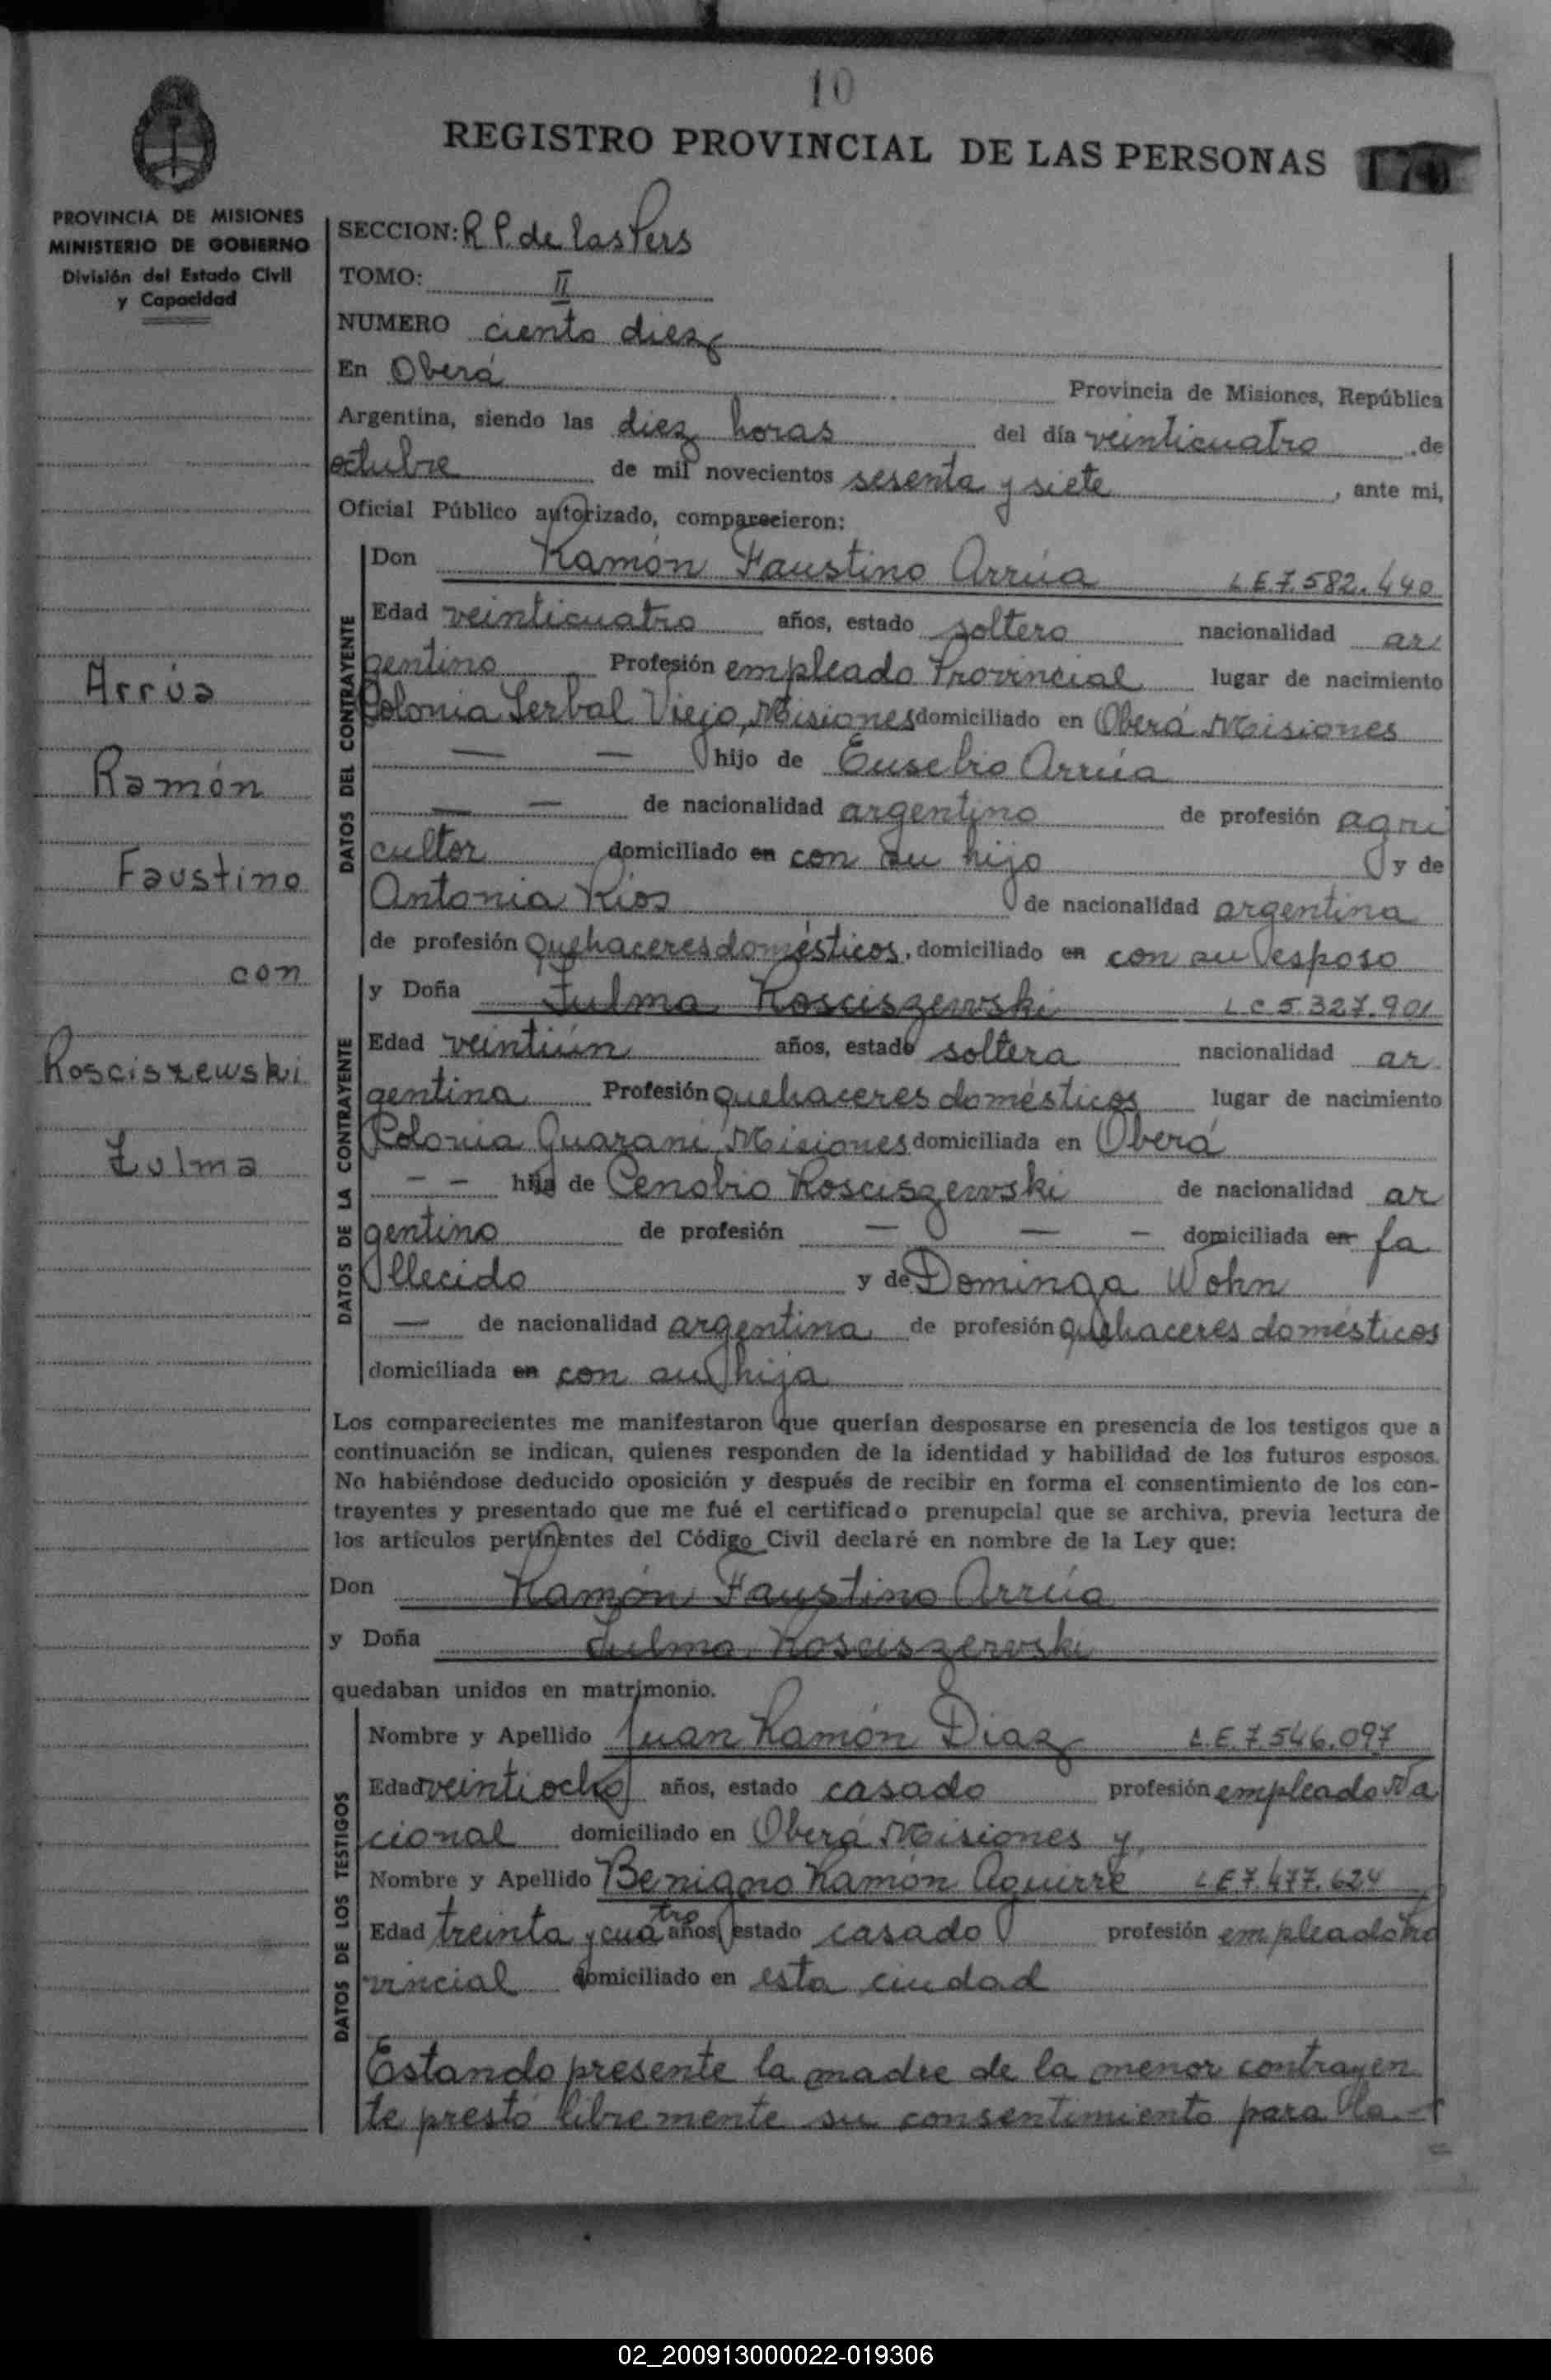 10
REGISTRO PROVINCIAL DE LAS PERSONAS
174
PROVINCIA DE MISIONES
MINISTERIO DE GOBIERNO
División del Estado Civil
y Capacidad
SECCION: R P. de las Pers
TOMO: II
NUMERO ciento diez
En Oberá Provincia de Misiones, República
Argentina, siendo las diez horas del día veinticuatro de
octubre de mil novecientos sesenta y siete, ante mi,
Oficial Público autorizado, comparecieron:
DATOS DEL CONTRAYENTE
Don Ramón Faustino Arrúa L E 7.582.440
Edad veinticuatro años, estado soltero nacionalidad ar
gentino Profesión empleado Provincial lugar de nacimiento
Colonia Yerbal Viejo, Misiones domiciliado en Oberá Misiones
— — hijo de Eusebio Arrúa
— — de nacionalidad argentino de profesión agri
cultor domiciliado en con su hijo y de
Antonia Rios de nacionalidad argentina
de profesión quehaceres domésticos, domiciliado en con su esposo
DATOS DE LA CONTRAYENTE
y Doña Zulma Rosciszewski L C 5.327.901
Edad veintiún años, estado soltera nacionalidad ar
gentina Profesión quehaceres domésticos lugar de nacimiento
Colonia Guarani, Misiones domiciliada en Oberá
- - hija de Cenobio Rosciszewski de nacionalidad ar
gentino de profesión — — — domiciliada en fa
llecido y de Dominga Wohn
— de nacionalidad argentina de profesión quehaceres domésticos
domiciliada en con su hija
Los comparecientes me manifestaron que querían desposarse en presencia de los testigos que a
continuación se indican, quienes responden de la identidad y habilidad de los futuros esposos.
No habiéndose deducido oposición y después de recibir en forma el consentimiento de los con-
trayentes y presentado que me fué el certificado prenupcial que se archiva, previa lectura de
los artículos pertinentes del Código Civil declaré en nombre de la Ley que:
Don Ramón Faustino Arrúa
y Doña Zulma Rosciszewski
quedaban unidos en matrimonio.
DATOS DE LOS TESTIGOS
Nombre y Apellido Juan Ramón Diaz L.E.7.546.097
Edad veintiocho años, estado casado profesión empleado Na
cional domiciliado en Oberá Misiones y
Nombre y Apellido Benigno Ramón Aguirre L E 7.477.624
Edad treinta y cuatro años, estado casado profesión empleado Pro
vincial domiciliado en esta ciudad
Estando presente la madre de la menor contrayen
te prestó libremente su consentimiento para la
Arrúa
Ramón
Faustino
con
Rosciszewski
Zulma
02_200913000022-019306